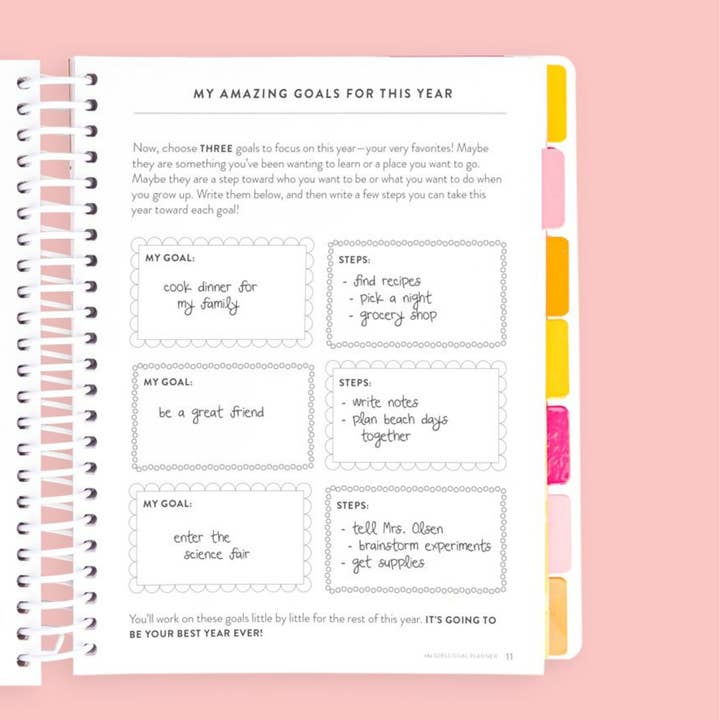 MY AMAZING GOALS FOR THIS YEAR
Now, choose THREE goals to focus on this year—your very favorites! Maybe
they are something you've been wanting to learn or a place you want to go.
Maybe they are a step toward who you want to be or what you want to do when
you grow up. Write them below, and then write a few steps you can take this
year toward each goal!
MY GOAL:
cook dinner for
my family
STEPS:
- find recipes
- pick a night
- grocery shop
MY GOAL:
be a great friend
STEPS:
- write notes
- plan beach days
together
MY GOAL:
enter the
science fair
STEPS:
- tell Mrs. Olsen
- brainstorm experiments
- get supplies
You'll work on these goals little by little for the rest of this year. IT'S GOING TO
BE YOUR BEST YEAR EVER!
the GIRLS GOAL PLANNER 11